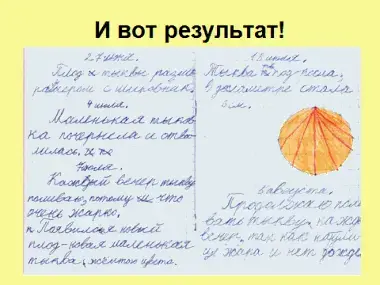 И вот результат!
27 июня.
Плод у тыквы разме
размером с шиповник.
4 июля.
Маленькая тыков
ка почернела и отва
лилась.
7 июля.
Каждый вечер тыкву
поливаю, потому что
очень жарко.
Появился новый
плод-новая маленькая
тыква, жёлтого цвета.
15 июля.
Тыква
в диаметре стала
5 см.
5 августа.
Продолжаю поли
вать тыкву, каждый
вечер, так как
жара и нет дождя